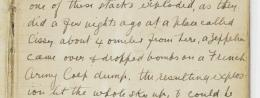 one of these stacks exploded, as they
did a few nights ago at a place called
Cissey about 4 miles from here, a Zeppelin
came over & dropped bombs on a French
Army Corp dump. The resulting explos-
ion lit the whole sky up, & could be